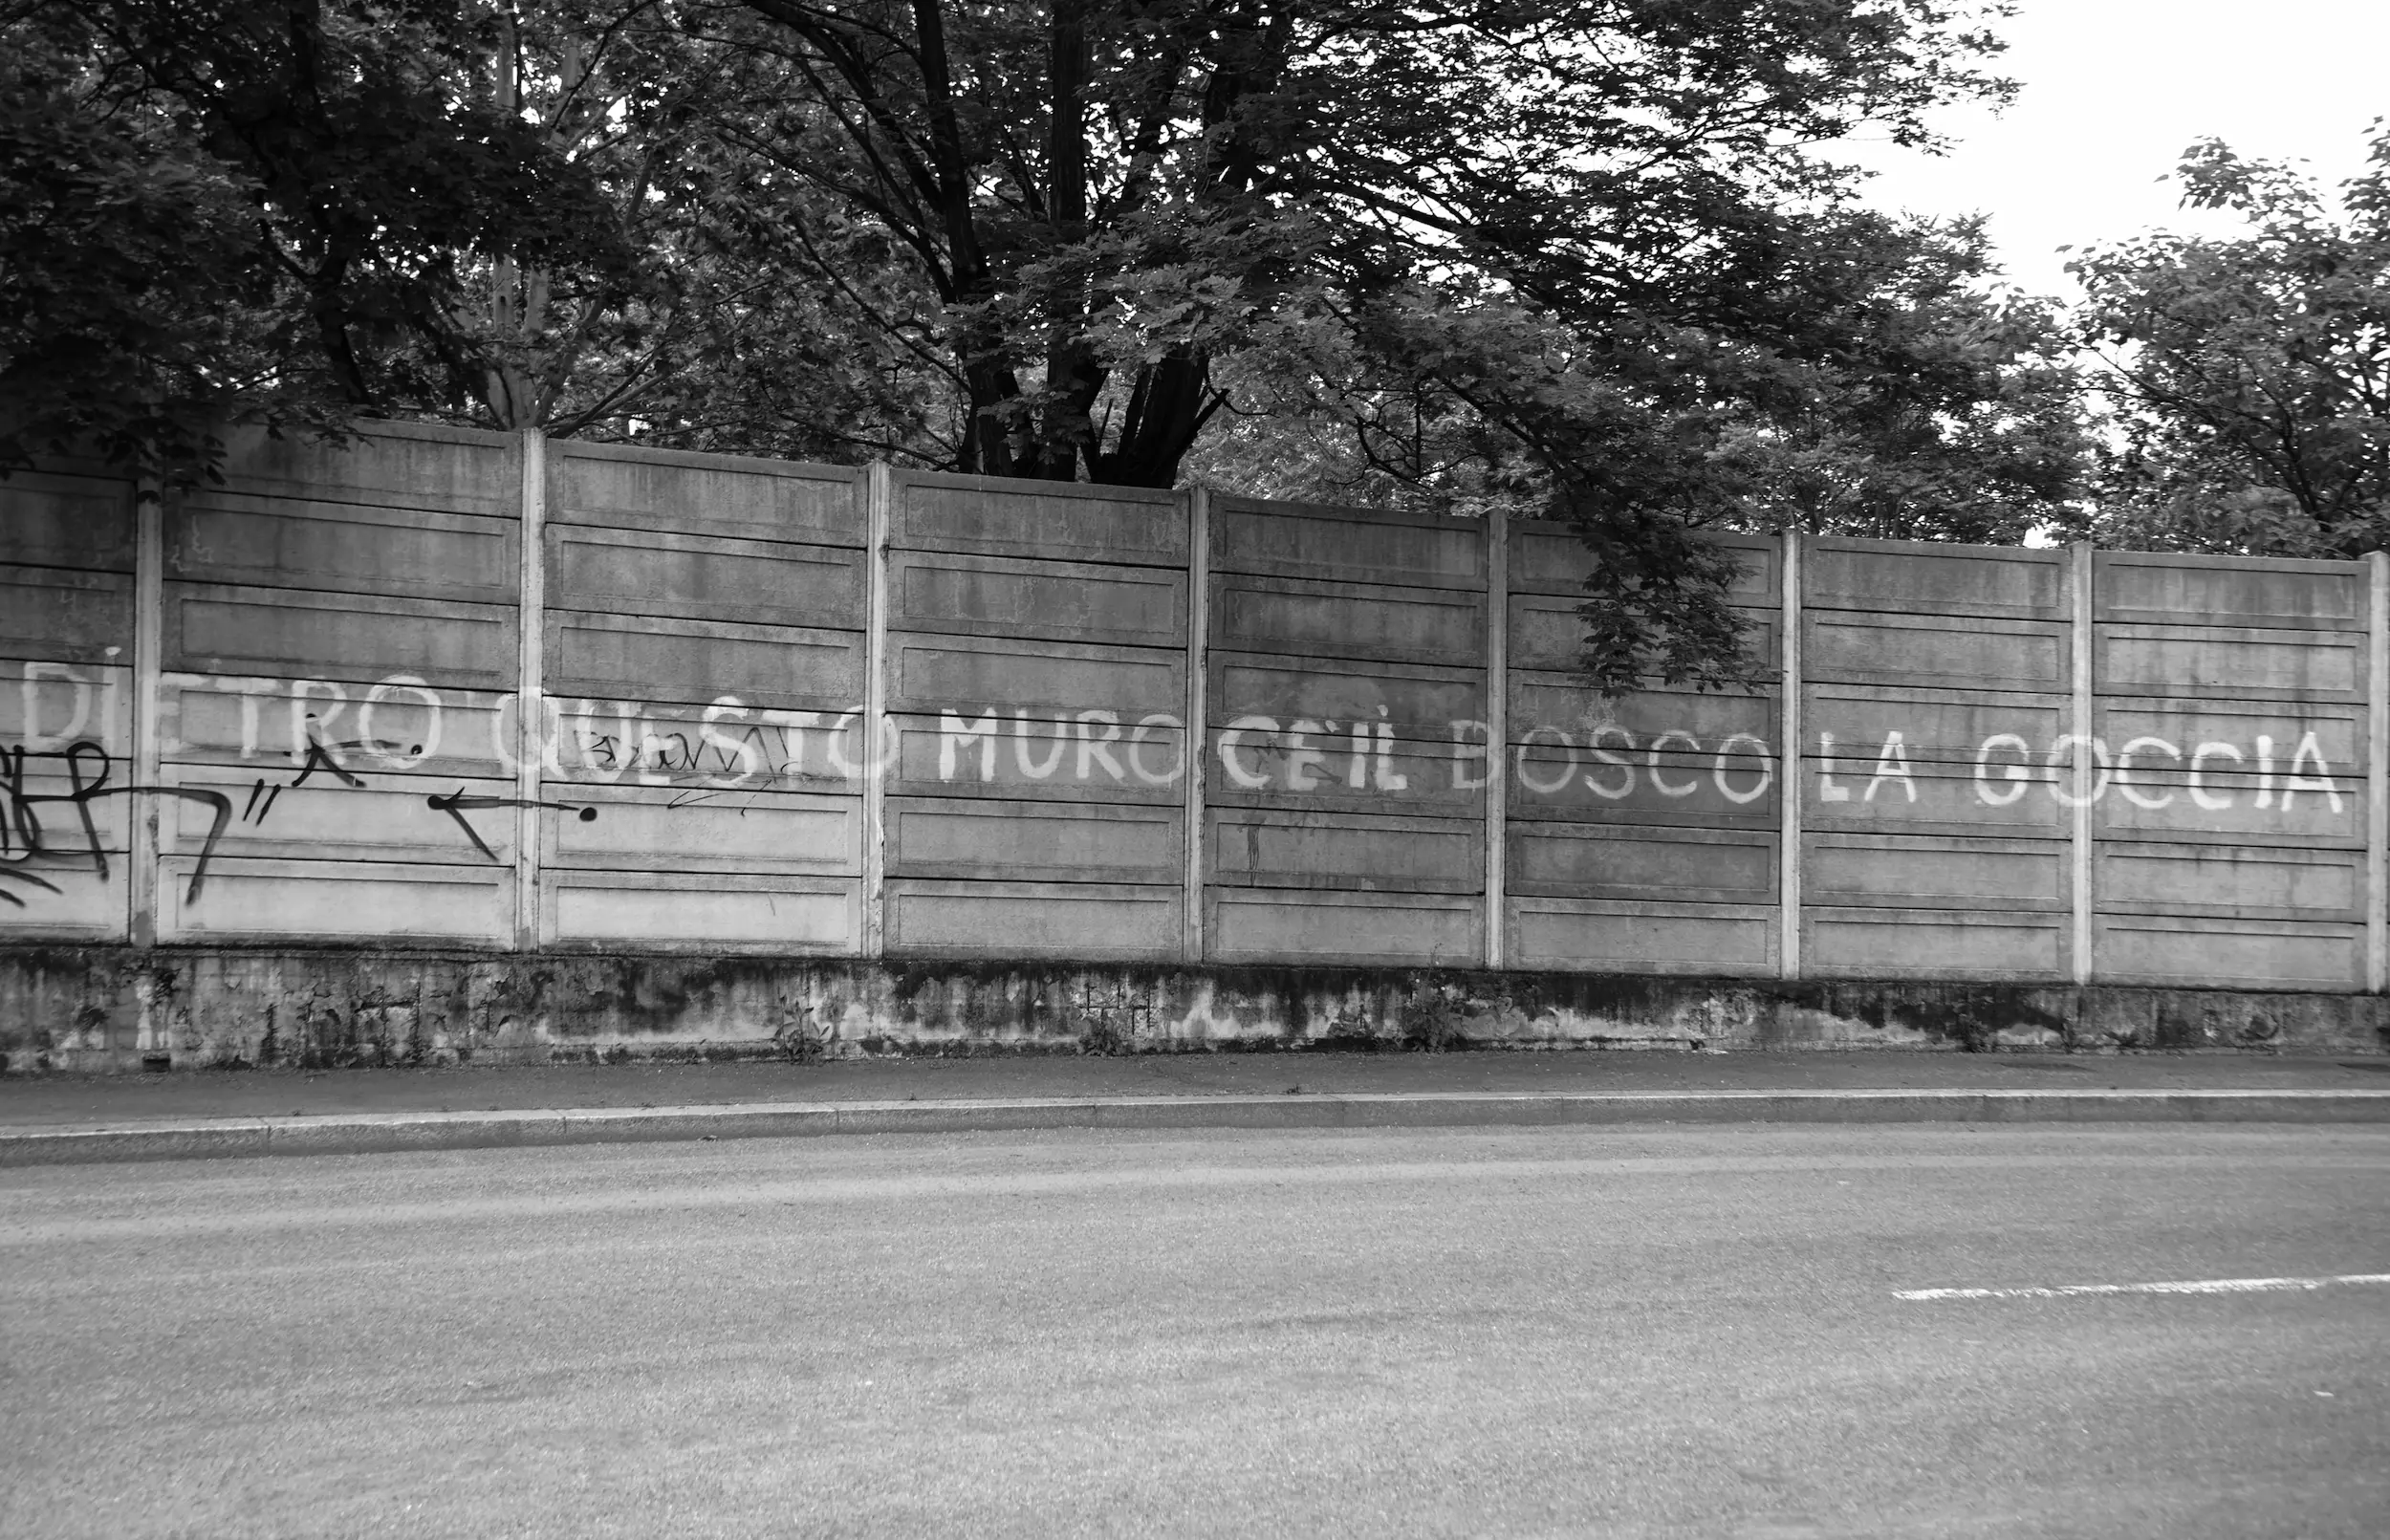 DIETRO QUESTO MURO CE'IL BOSCO LA GOCCIA